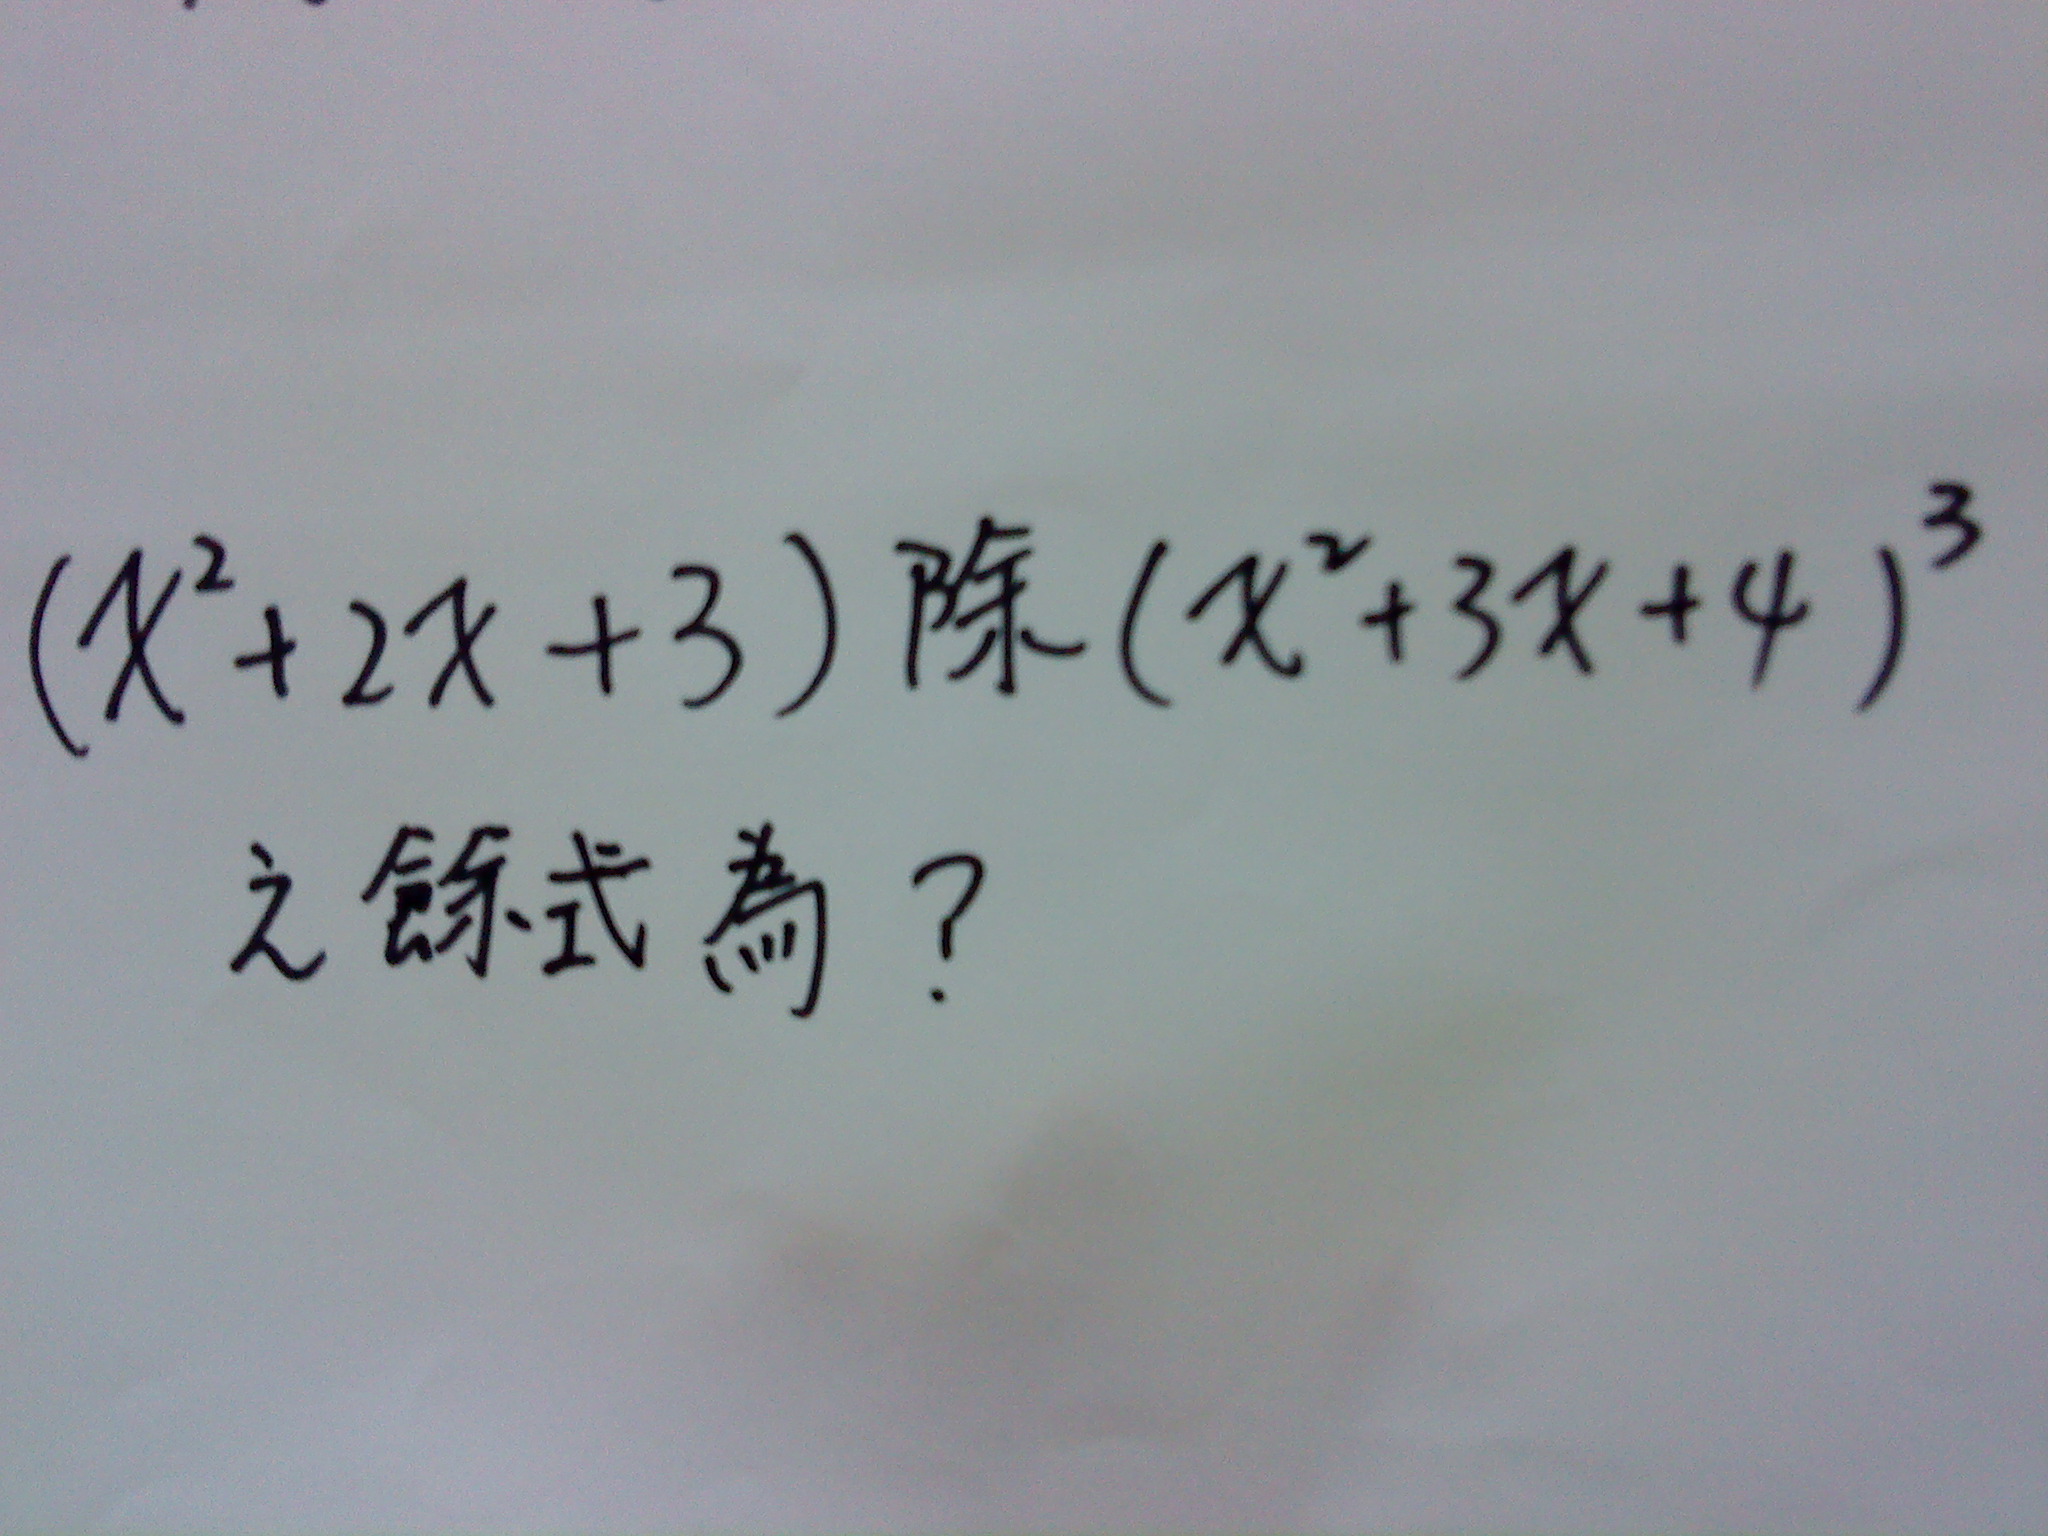 (x²+2x+3)除(x²+3x+4)³
之餘式為?